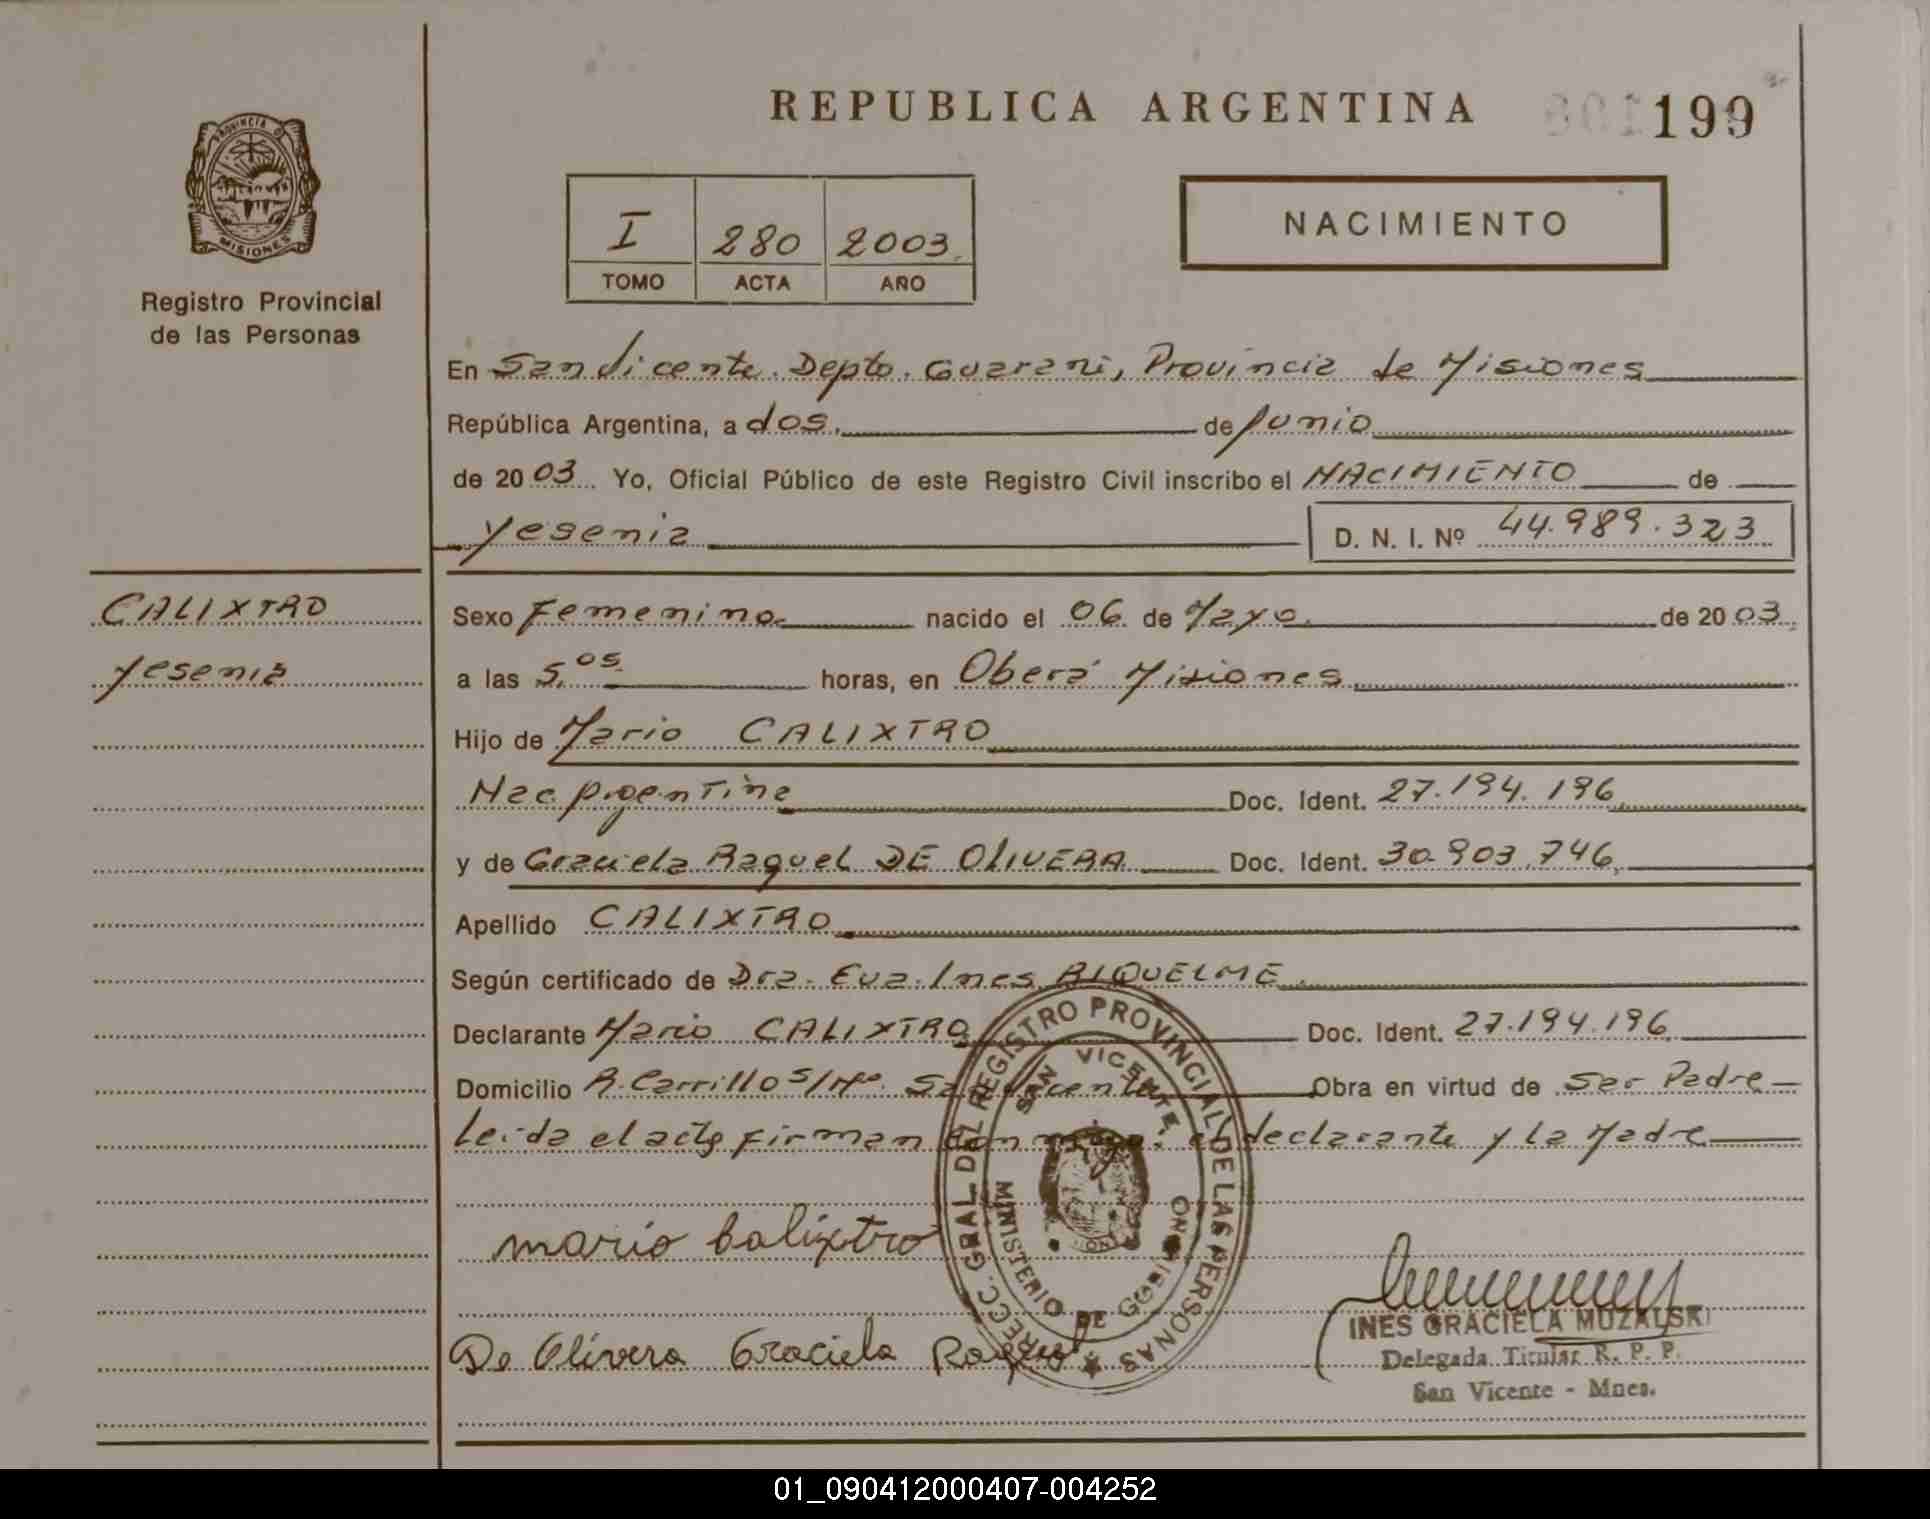 REPUBLICA ARGENTINA
199
PROVINCIA D
MISIONES
Registro Provincial
de las Personas
I 280 2003
TOMO ACTA AÑO
NACIMIENTO
En San Vicente. Depto. Guarani, Provincia de Misiones
República Argentina, a dos. de Junio
de 2003. Yo, Oficial Público de este Registro Civil inscribo el NACIMIENTO de
Yesenia D. N. I. Nº 44.989.323
CALIXTRO
Yesenia
Sexo Femenino nacido el 06 de Mayo. de 2003.
a las 5.05 horas, en Oberá Misiones
Hijo de Mario CALIXTRO
Nac. Argentina Doc. Ident. 27.194.196
y de Graciela Raquel DE OLIVERA Doc. Ident. 30.903.746
Apellido CALIXTRO
Según certificado de Dra. Eva Ines RIQUELME
Declarante Mario CALIXTRO Doc. Ident. 27.194.196
Domicilio R. Carrillo s/Nº. San Vicente Obra en virtud de Ser Padre
Leida el acta firman conmigo. el declarante y la Madre
mario Calixtro
De Olivera Graciela Raquel
DIRECC. GRAL DEL REGISTRO PROVINCIAL DE LAS PERSONAS
SAN VICENTE
MINISTERIO DE GOBIERNO
INES GRACIELA MUZALSKI
Delegada Titular R. P. P.
San Vicente - Mnes.
01_090412000407-004252